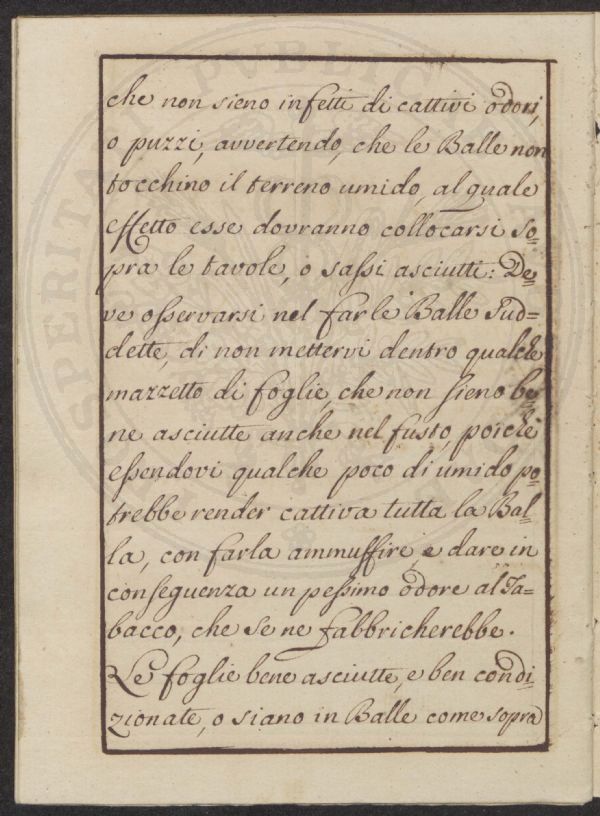 che non sieno infetti di cattivi odori,
o puzzi, avvertendo, che le Balle non
tocchino il terreno umido, al quale
effetto esse dovranno collocarsi so=
pra le tavole, o sassi asciutti: De=
ve osservarsi nel far le Balle sud=
dette, di non mettervi dentro qualche
mazzetto di foglie, che non sieno be=
ne asciutte anche nel fusto, poichè
essendovi qualche poco di umido po=
trebbe render cattiva tutta la Bal=
la, con farla ammuffire, e dare in
conseguenza un pessimo odore al Ta=
bacco, che se ne fabbricherebbe.
Le foglie bene asciutte, e ben condi=
zionate, o siano in Balle come sopra